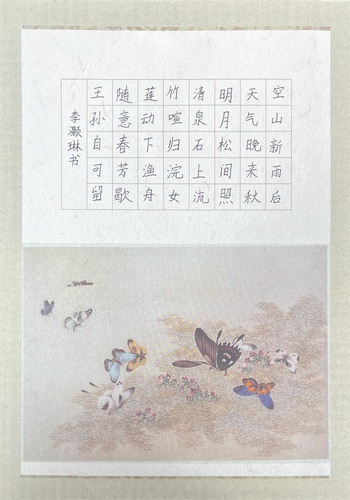 空山新雨后
天气晚来秋
明月松间照
清泉石上流
竹喧归浣女
莲动下渔舟
随意春芳歇
王孙自可留
李灏琳书